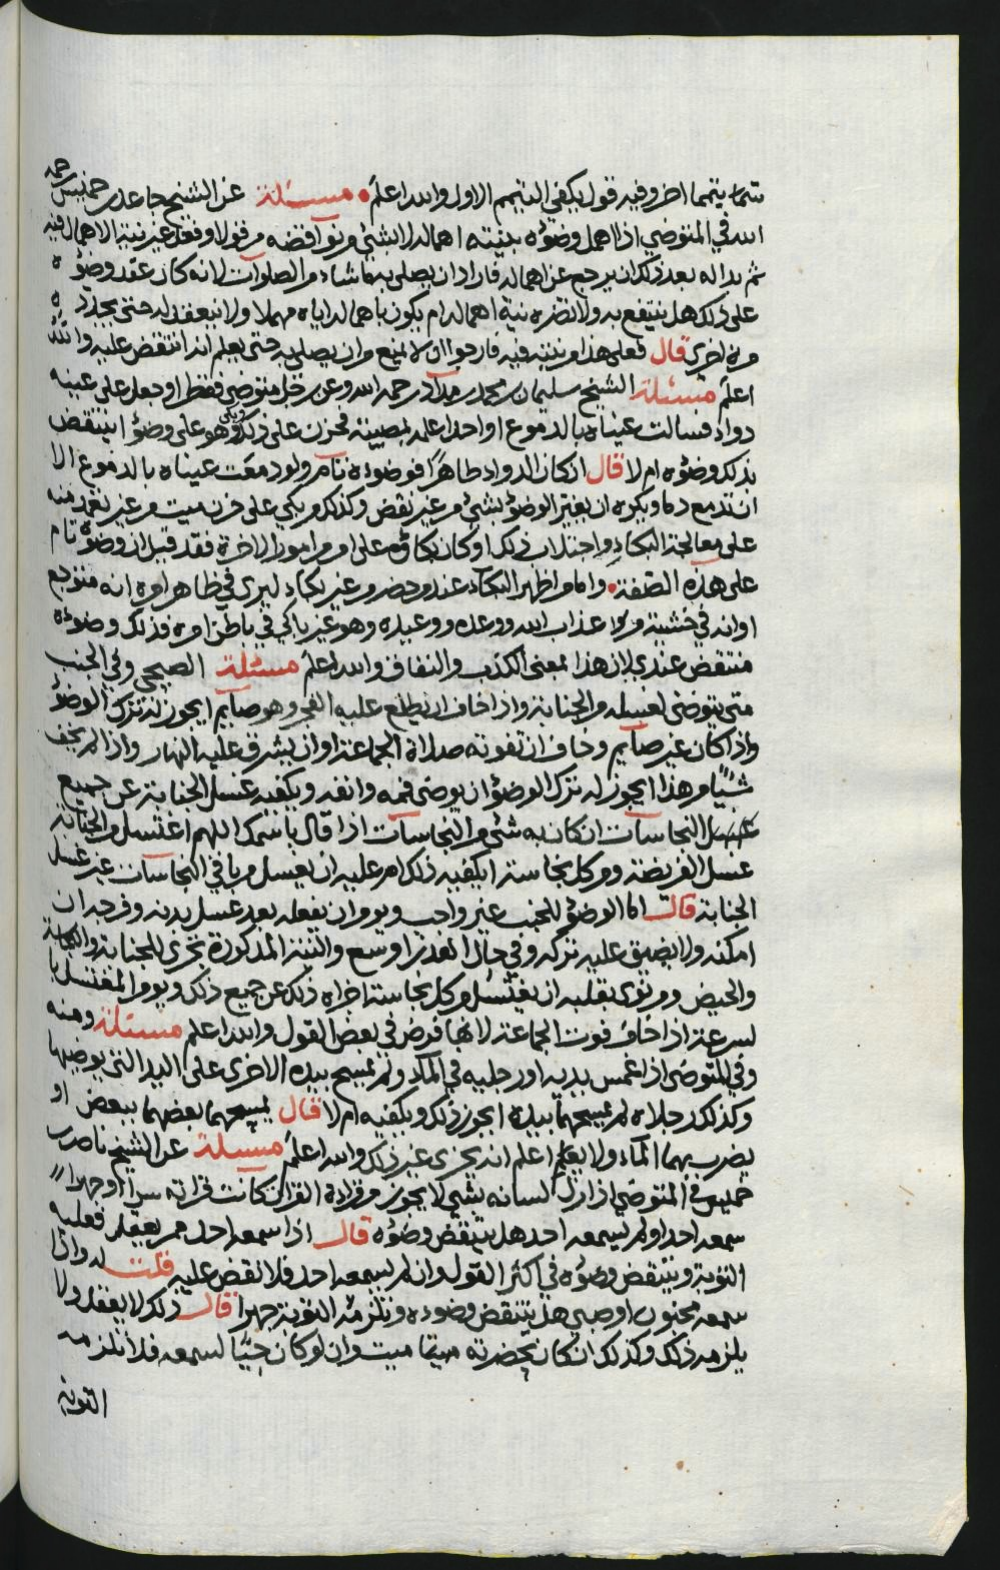 تيمما آخر وفيه قول يكفي التيمم الاول والله اعلم • مسئلة عن الشيخ جاعد بن خميس رحمه
الله في المتوضي اذا اهمل وضوءه بنيته اهماله لا بشيء من نواقضه من قول او فعل غير نية الاهمال فيه
ثم بدا له بعد ذلك ان يرجع عن اهماله فاراد ان يصلي به ما شاء من الصلوات لانه كان عقد وضوءه
على ذلك هل ينتفع به ولا تضره نية اهماله ام يكون باهماله اياه مهملا ولا ينعقد له حتى يجدده
مرة اخرى قال فعلى هذا من نيته فيه فارجو ان لا يمنع من ان يصلي به حتى يعلم انه انتقض عليه والله
اعلم مسئلة الشيخ سليمان بن محمد بن مداد رحمه الله وعن رجل متوضي قطر او جعل على عينه
دواء فسالت عيناه بالدموع او احدا علمه بمصيبة فحزن على ذلك وبكى وهو على وضوء اينتقض
بذلك وضوءه ام لا قال ان كان الدواء طاهرا فوضوءه تام ولو دمعت عيناه بالدموع الا
ان تدمع دما ويكره ان يغير الوضوء بشيء من غير نقض وكذلك من بكى على حزن ميت من غير تعمد منه
على معالجة البكاء واجتلاب ذلك او كان بكاؤه على امر من امور الاخرة فقد قيل ان وضوءه تام
على هذه الصفة • واما من اظهر البكاء عند من حضر من غير بكاء ليرى في ظاهر امره انه متوجع
او انه في خشية من عذاب الله ووعده ووعيده وهو غير باكي في باطن امره فذلك وضوءه
منتقض عندي لان هذا بمعنى الكذب والنفاق والله اعلم مسئلة الصبحي وفي الجنب
متى يتوضى لغسله من الجنابة واذا خاف ان يطلع عليه الفجر وهو صايم ايجوز له ترك الوضوء
واذا كان غير صايم وخاف ان تفوته صلاة الجماعة او ان يشرق عليه النهار واذا لم يخف
شيئا من هذا ايجوز له ترك الوضوء ان يوضي فمه وانفه ويكفيه غسل الجنابة عن جميع
النجاسات ان كان به شيء من النجاسات اذا قال باسمك اللهم اغتسل من الجنابة
غسل الفريضة ومن كل نجاسة ايكفيه ذلك ام عليه ان يغسل من باقي النجاسات غير غسل
الجنابة قال اما الوضوء للجنب غير واجب ويومر ان يفعله بعد غسل بدنه وفرجه ان
امكنه ولا يضيق عليه تركه وفي حال العذر اوسع والنية المذكورة تجزي للجنابة والنجاسة
والحيض ومن نوى بقلبه ان يغتسل من كل نجاسة اجزاه ذلك عن جميع ذلك ويومر المغتسل با
لسرعة اذا خاف فوت الجماعة لانها فرض في بعض القول والله اعلم مسئلة ومنه
وفي المتوضي اذا غمس يديه او رجليه في الماء ولم يمسح بيده الاخرى على اليد التي يوضيها
وكذلك رجلاه لم يمسحهما بيده ايجوز ذلك ويكفيه ام لا قال يمسحهما بعضهما ببعض او
يضرب بهما الماء ولا يعلم اعلم انه يجزي غير ذلك والله اعلم مسئلة عن الشيخ ناصر بن
خميس في المتوضي اذا زل لسانه بشيء لا يجوز من قراءة القرآن كانت قراته سرا او جهرا
سمعه احد او لم يسمعه احد هل ينتقض وضوءه قال اذا سمعه احد ممن يعقل فعليه
التوبة وينتقض وضوءه في اكثر القول وان لم يسمعه احد فلا نقض عليه قلت له واذا
سمعه مجنون او صبي هل ينتقض وضوءه وتلزمه التوبة جهرا قال ذلك لا يعقل ولا
يلزمه ذلك وكذلك ان كان بحضرته ميتا ميت وان لو كان حيا لسمعه فلا تلزمه
التوبة